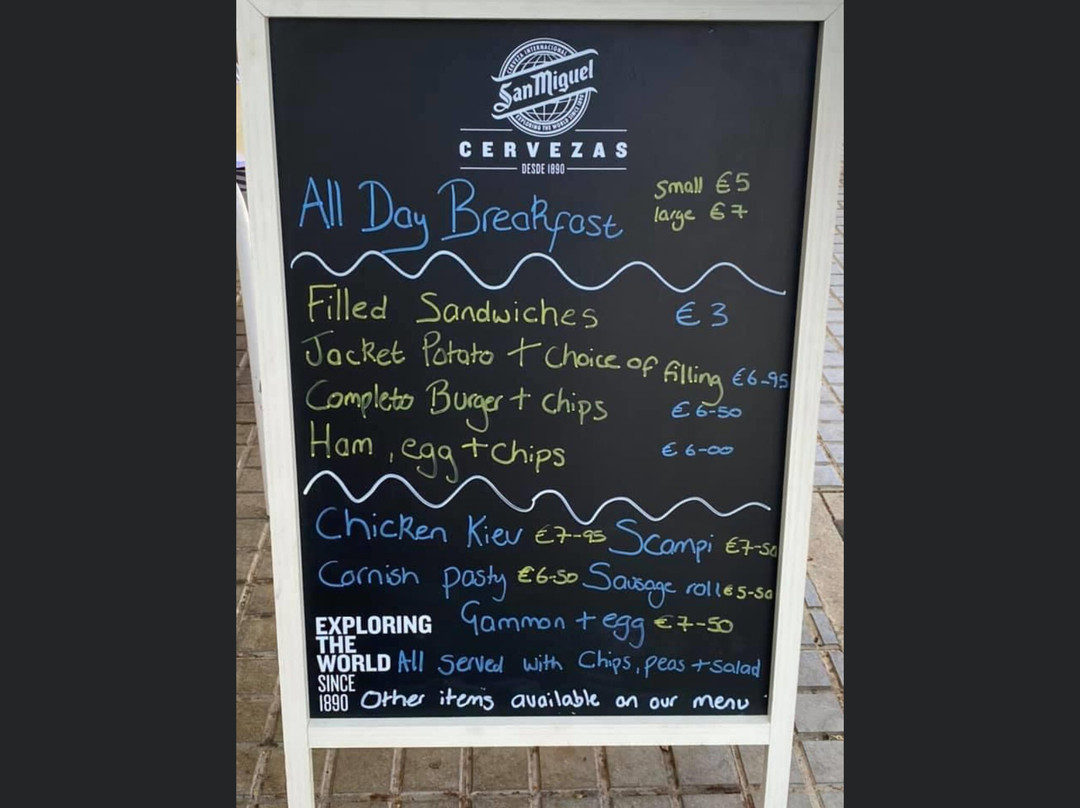 CERVEZA INTERNACIONAL
San Miguel
EXPLORING THE WORLD SINCE 1890
CERVEZAS
DESDE 1890
All Day Breakfast small €5
large €7
Filled Sandwiches €3
Jacket Potato + choice of filling €6-95
Completo Burger + chips €6-50
Ham, egg + chips €6-00
Chicken Kiev €7-95 Scampi €7-50
Cornish pasty €6-50 Sausage roll €5-50
Gammon + egg €7-50
EXPLORING
THE
WORLD
SINCE
1890
All served with Chips, peas + salad
Other items available on our menu